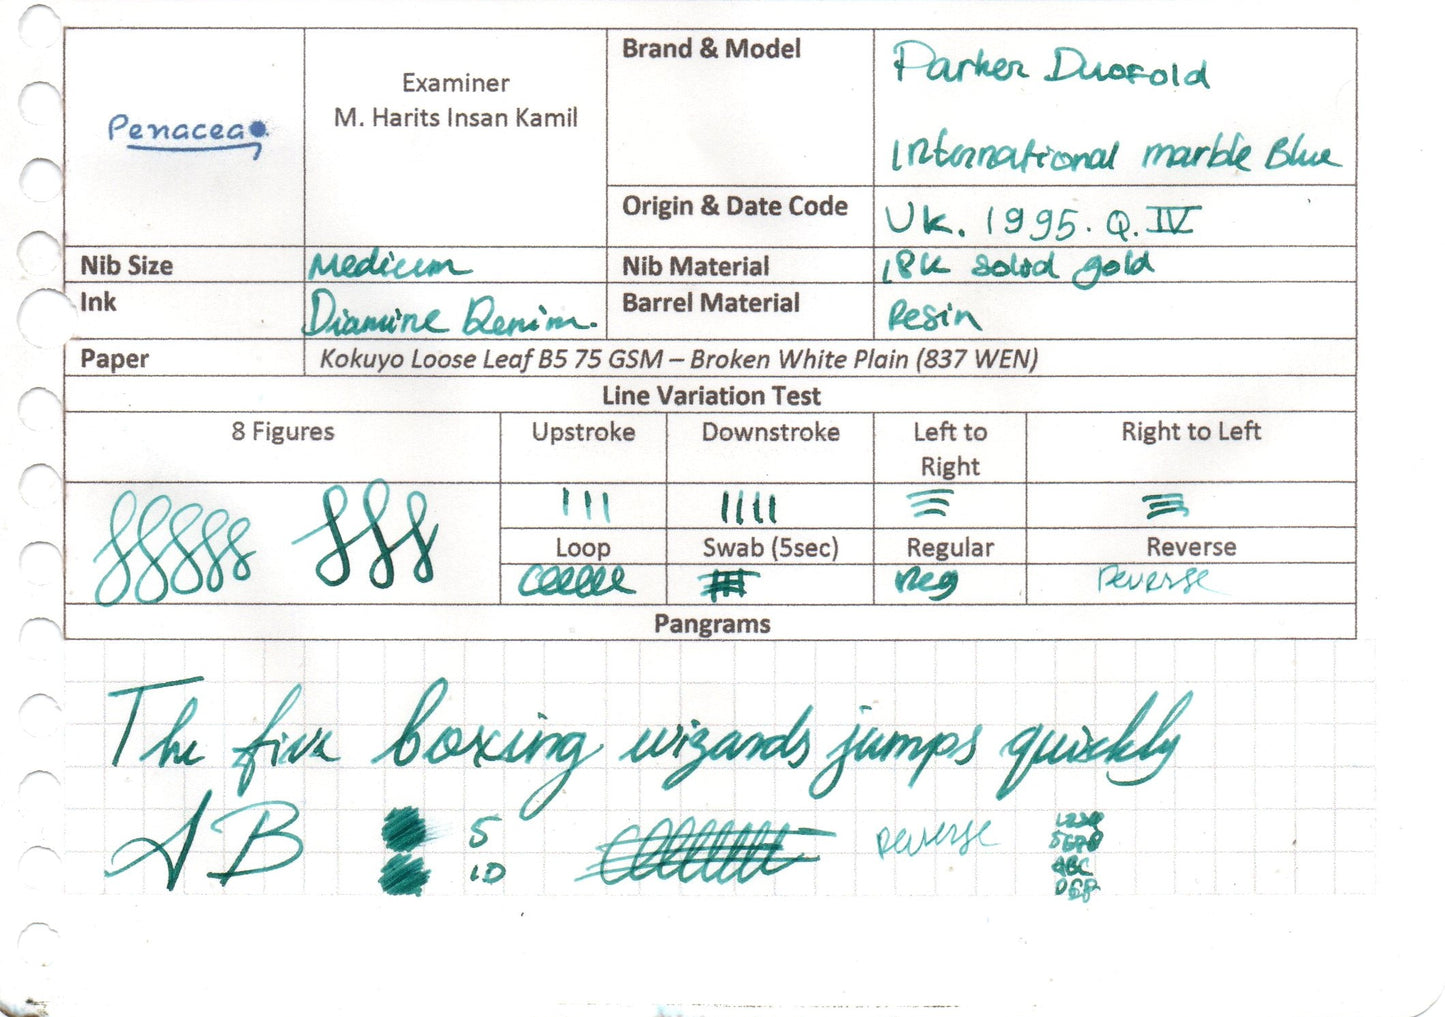 Penacea
Examiner
M. Harits Insan Kamil
Brand & Model
Parker Duofold
International marble Blue
Origin & Date Code
UK. 1995. Q. IV
Nib Size
Medium
Nib Material
18K solid gold
Ink
Diamine Denim.
Barrel Material
Resin
Paper
Kokuyo Loose Leaf B5 75 GSM – Broken White Plain (837 WEN)
Line Variation Test
8 Figures
Upstroke
Downstroke
Left to
Right
Right to Left
Loop
Swab (5sec)
Regular
Reverse
Reg
Reverse
Pangrams
The five boxing wizards jumps quickly
A B
5
10
Reverse
ABC